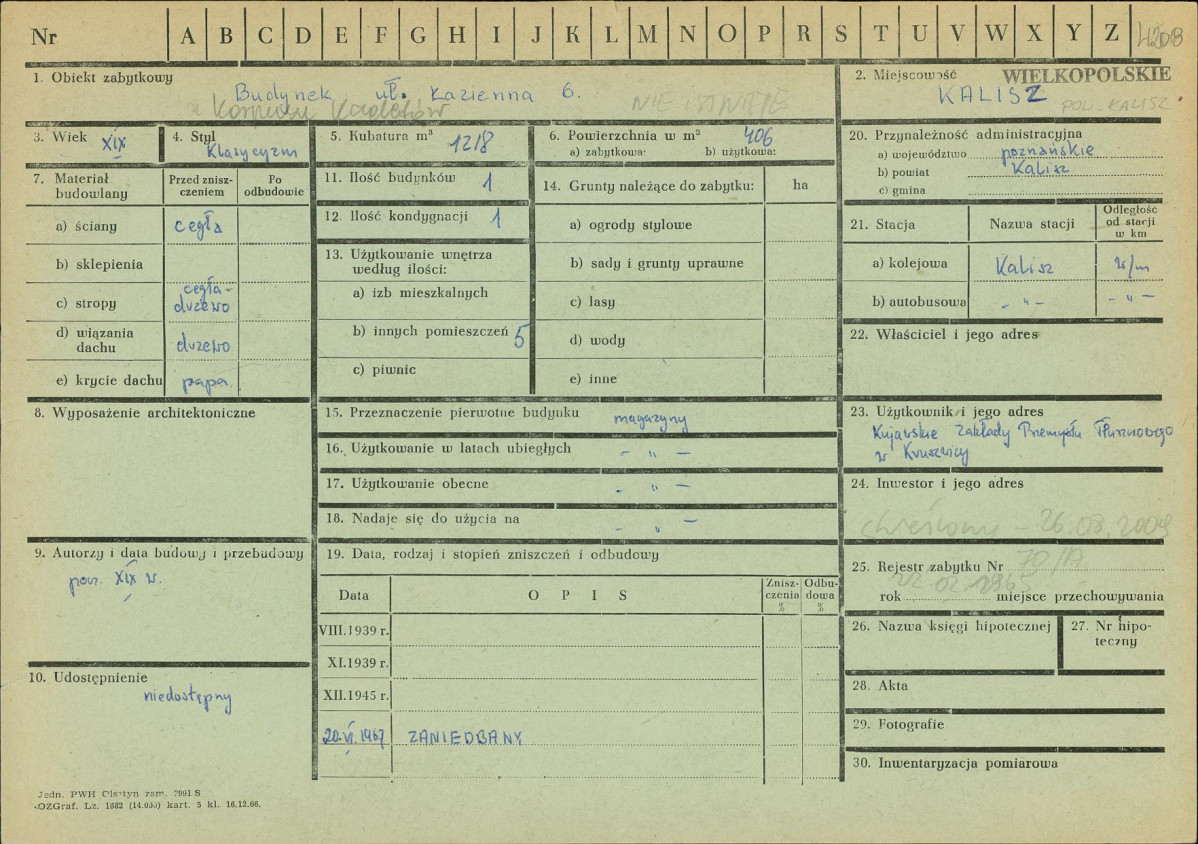 Nr A B C D E F G H I J K L M N O P R S T U V W X Y Z
1. Obiekt zabytkowy
Budynek uł. Łazienna 6.
Korpusu Kadetów NIE ISTNIEJE
2. Miejscowość WIELKOPOLSKIE
KALISZ
POL. KALISZ
3. Wiek XIX
4. Styl
Klasycyzm
5. Kubatura m³ 1218
6. Powierzchnia w m² 406
a) zabytkowa: b) użytkowa:
7. Materiał budowlany
Przed znisz-
czeniem
Po
odbudowie
a) ściany cegła
b) sklepienia
c) stropy cegła-
drzewo
d) wiązania
dachu drzewo
e) krycie dachu papa
8. Wyposażenie architektoniczne
9. Autorzy i data budowy i przebudowy
poł. XIX w.
10. Udostępnienie
niedostępny
11. Ilość budynków 1
12. Ilość kondygnacji 1
13. Użytkowanie wnętrza
według ilości:
a) izb mieszkalnych
b) innych pomieszczeń 5
c) piwnic
14. Grunty należące do zabytku: ha
a) ogrody stylowe
b) sady i grunty uprawne
c) lasy
d) wody
e) inne
15. Przeznaczenie pierwotne budynku magazyny
16. Użytkowanie w latach ubiegłych - " -
17. Użytkowanie obecne - " -
18. Nadaje się do użycia na - " -
19. Data, rodzaj i stopień zniszczeń i odbudowy
Data O P I S
Znisz-
czenia
%
Odbu-
dowa
%
VIII.1939 r.
XI.1939 r.
XII.1945 r.
20.VI.1967 ZANIEDBANY
20. Przynależność administracyjna
a) województwo poznańskie
b) powiat Kalisz
c) gmina
21. Stacja Nazwa stacji
Odległość
od stacji
w km
a) kolejowa Kalisz w/m
b) autobusowa - " - - " -
22. Właściciel i jego adres
23. Użytkownik i jego adres
Kujawskie Zakłady Przemysłu Tłuszczowego
w Kruszwicy
24. Inwestor i jego adres
skreślony - 26.08.2009
25. Rejestr zabytku Nr 70/A
22.02.1965
rok miejsce przechowywania
26. Nazwa księgi hipotecznej
27. Nr hipo-
teczny
28. Akta
29. Fotografie
30. Inwentaryzacja pomiarowa
Jedn. PWH Olsztyn zam. 2991 S
OZGraf. Lz. 1882 (14.000) kart. 5 kl. 16.12.66.